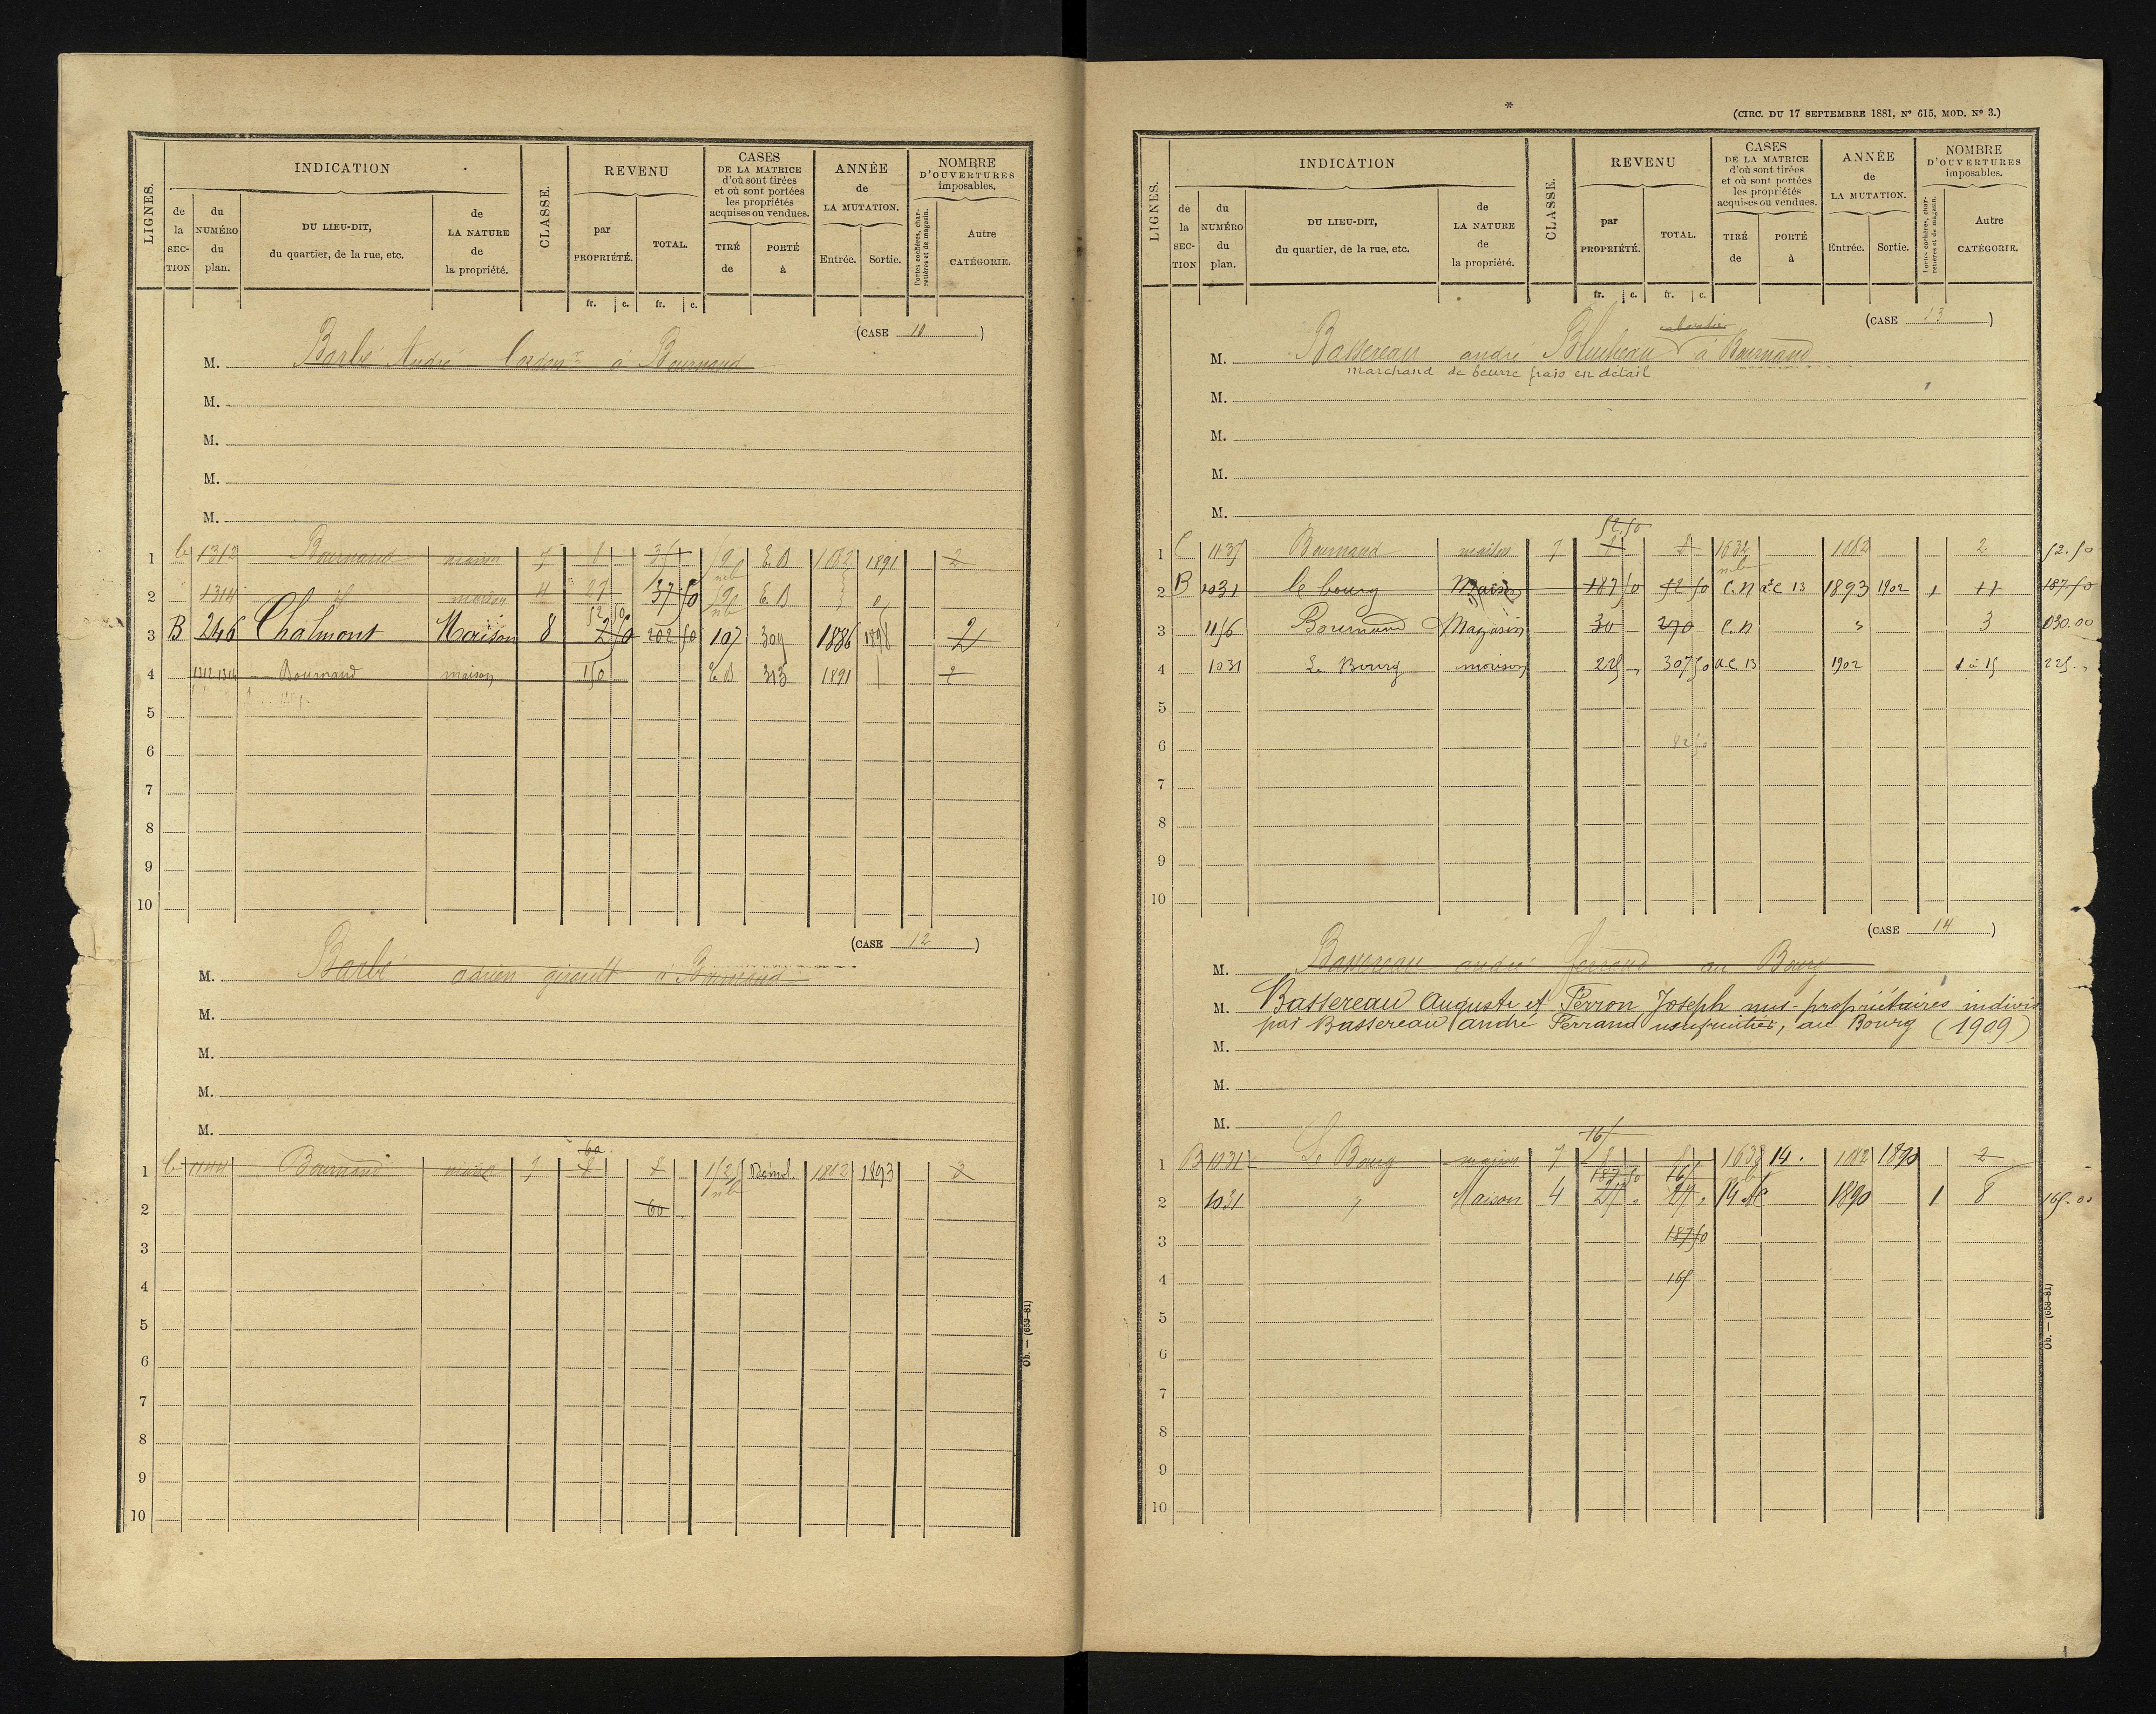 LIGNES.
INDICATION
de la SECTION
du NUMÉRO du plan.
DU LIEU-DIT, du quartier, de la rue, etc.
de LA NATURE de la propriété.
CLASSE.
REVENU
par PROPRIÉTÉ.
TOTAL.
fr. c. fr. c.
CASES
DE LA MATRICE
d'où sont tirées
et où sont portées
les propriétés
acquises ou vendues.
TIRÉ de
PORTÉ à
ANNÉE
de
LA MUTATION.
Entrée. Sortie.
NOMBRE
D'OUVERTURES
imposables.
Portes cochères, charretières et de magasin.
Autre CATÉGORIE.
(CASE 10)
M. Barbé André à Bournand
M.
M.
M.
M.
1 1312 Bournand maison 7 8 E.B 1882 1891 2
2 1314 maison 4 37 50 E.B
3 B 246 Chalmont Maison 8 202 50 107 309 1886 2
4 1312 1314 Bournand maison 150 313 1891 2
5
6
7
8
9
10
(CASE 12)
M. Barbé à Bournand
M.
M.
M.
M.
60
1 1144 Bournand 7 8 8 Démol. 1882 1893 3
2 60
3
4
5
6
7
8
9
10
Ob. — (659-81)
*
(CIRC. DU 17 SEPTEMBRE 1881, N° 615, MOD. N° 3.)
LIGNES.
INDICATION
de la SECTION
du NUMÉRO du plan.
DU LIEU-DIT, du quartier, de la rue, etc.
de LA NATURE de la propriété.
CLASSE.
REVENU
par PROPRIÉTÉ.
TOTAL.
fr. c. fr. c.
CASES
DE LA MATRICE
d'où sont tirées
et où sont portées
les propriétés
acquises ou vendues.
TIRÉ de
PORTÉ à
ANNÉE
de
LA MUTATION.
Entrée. Sortie.
NOMBRE
D'OUVERTURES
imposables.
Portes cochères, charretières et de magasin.
Autre CATÉGORIE.
(CASE 13)
M. Bassereau andré à Bournand
marchand de beurre frais en détail
M.
M.
M.
M.
52.50
1 C 1137 Bournand maison 7 8 8 1632 1882 2 52.50
2 B 1031 le bourg Maison 187 50 52 50 C.N a.C 13 1893 1902 1 11 187.50
3 1156 Bournand Magasin 30 270 C.N 3 030.00
4 1031 Le Bourg maison 225 307 50 a.C. 13 1902 1 à 15 225
5
6 82 50
7
8
9
10
(CASE 14)
M. Bassereau andré ferrand au Bourg
M. Bassereau Auguste et Perron Joseph nus-propriétaires indivis
par Bassereau andré Ferrand usufruitier, au Bourg (1909)
M.
M.
M.
165
1 B 1031 Le Bourg maison 7 8 8 1638 14. 1882 1890 2
187 50 165
2 1031 Maison 4 27 27 14 1890 1 8 165.00
3 187 50
4 165
5
6
7
8
9
10
Ob. — (659-81)